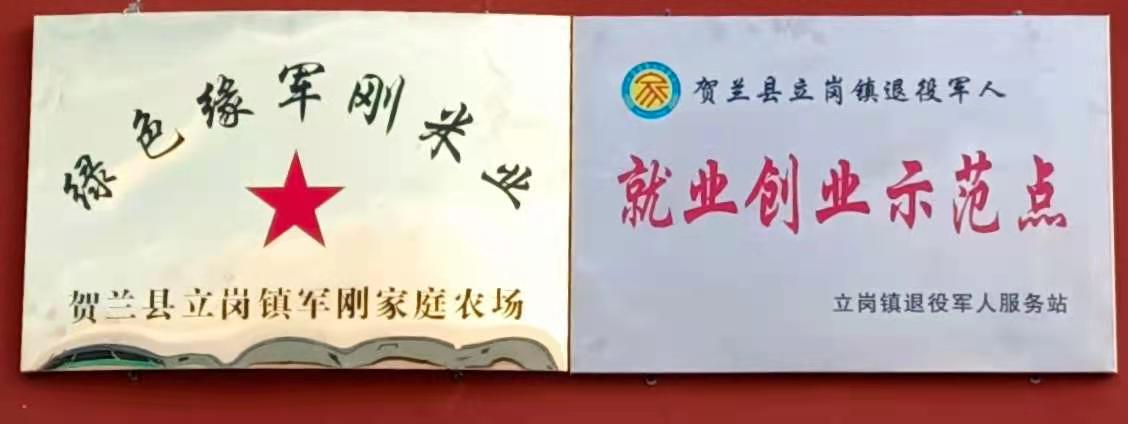 绿色缘军刚米店
贺兰县立岗镇军刚家庭农场
贺兰县立岗镇退役军人
就业创业示范点
立岗镇退役军人服务站